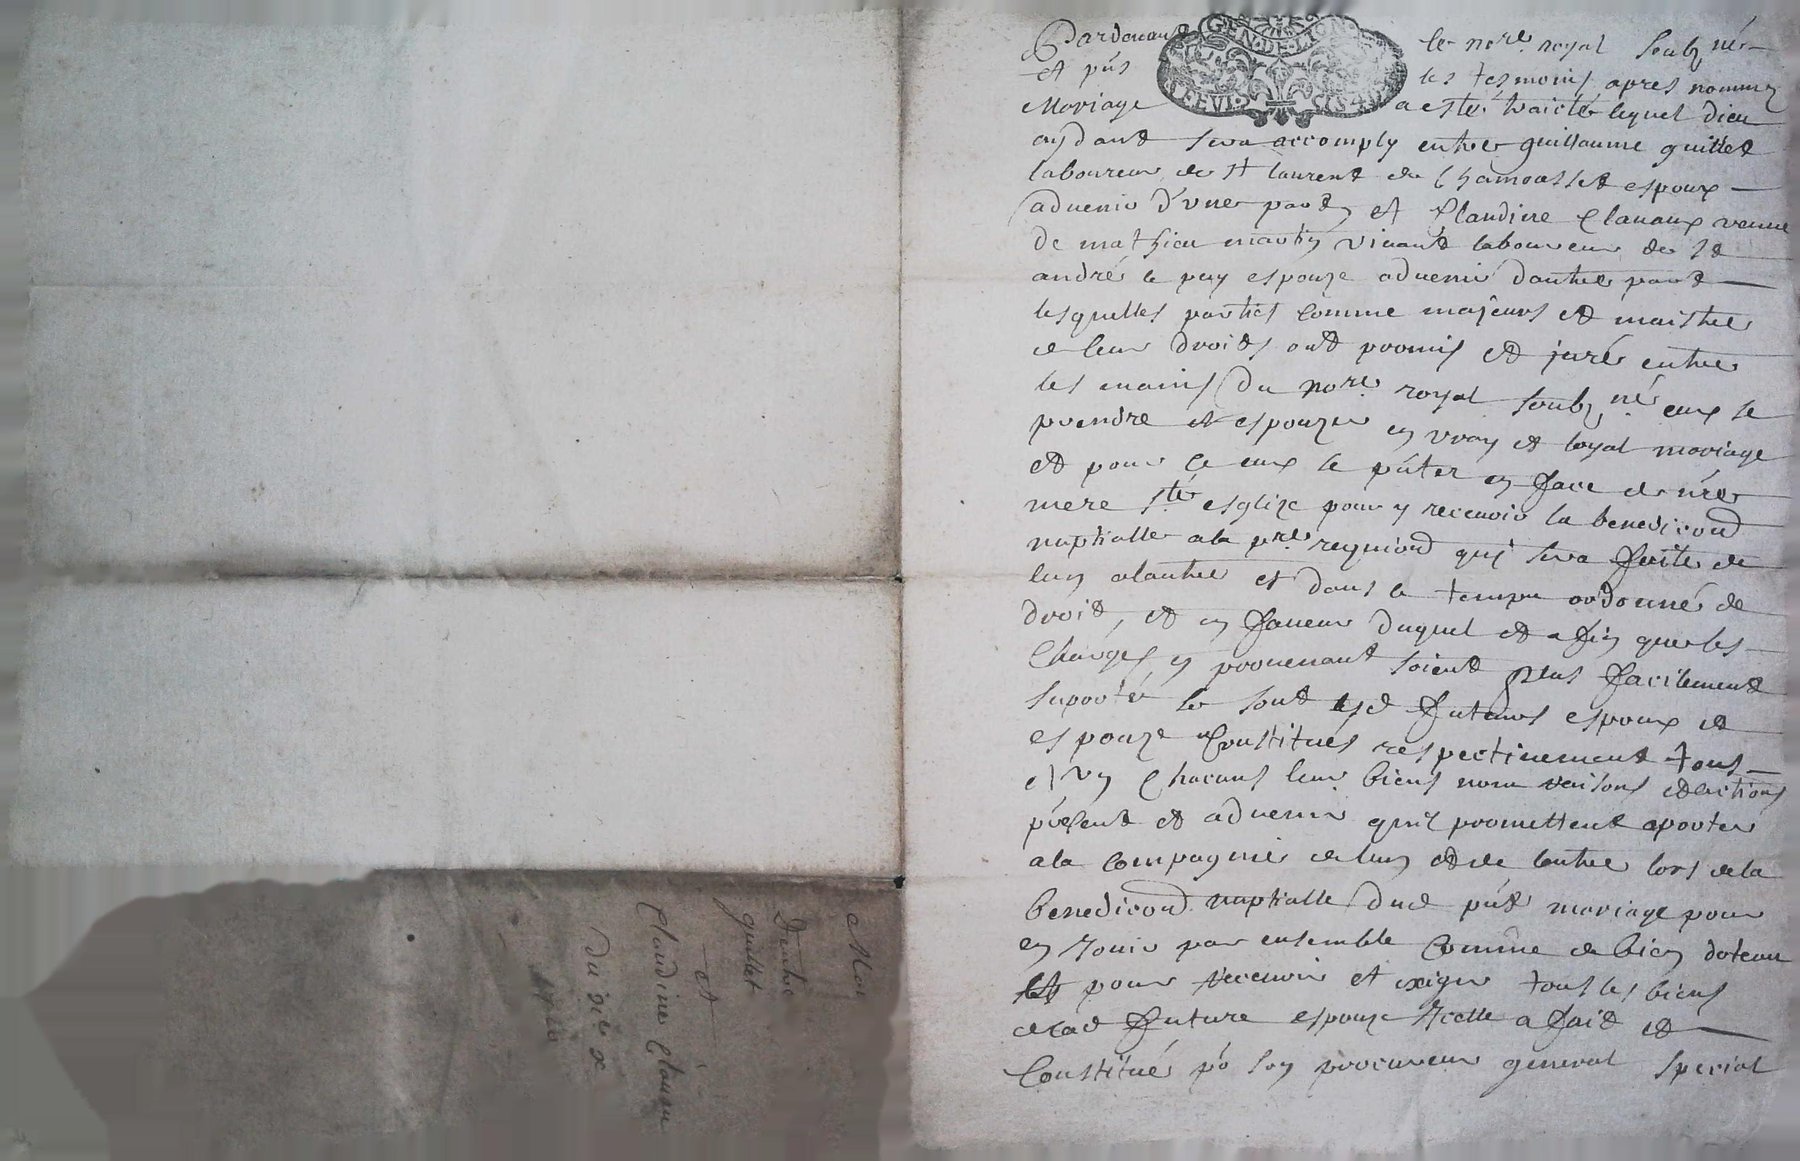 Pardevant le no.re royal soubz né
et pñs les tesmoins apres nommez
GEN·DE·LION
Mariage a esté traicté lequel dieu
aydant sera accomply entre guillaume guillet
laboureur de st laurent de Chamousset espoux
advenir d'une part, et Claudine Clavaux veuve
de mathieu martin vivant laboureur de st
andré le puy espouze advenir dautre part
lesquelles parties comme majeurs et maistre
de leur droits ont promis et juré entre
les mains du no.re royal soubz né eux se
prendre et espouzer en vray et loyal mariage
et pour ce eux se pñter en face de nre
mere s.te esglize pour y recevoir la benediond
nuptialle a la pre. requiond quj sera faite de
lun a lautre et dans le temps ordonné de
droit, et en faveur duquel et afin que les
Charges en provenant soient plus facilement
suporté se sont lesd futeurs espoux et
espouze Constitués respectivement tous
et un Chacuns leur biens nom raisons et actions
présent et advenir quil promettent aporter
a la compagnie de lun et de lautre lors de la
benediond nuptialle dud pñt mariage pour
en Jouir par ensemble Comme de bien doteaux
et pour recevoir et exiger tous les biens
de lad future espouze Icelle a fait et
Constitué po son procureur general special
Mar
Dentre
guillet
et
Claudine Clavau
Du dix